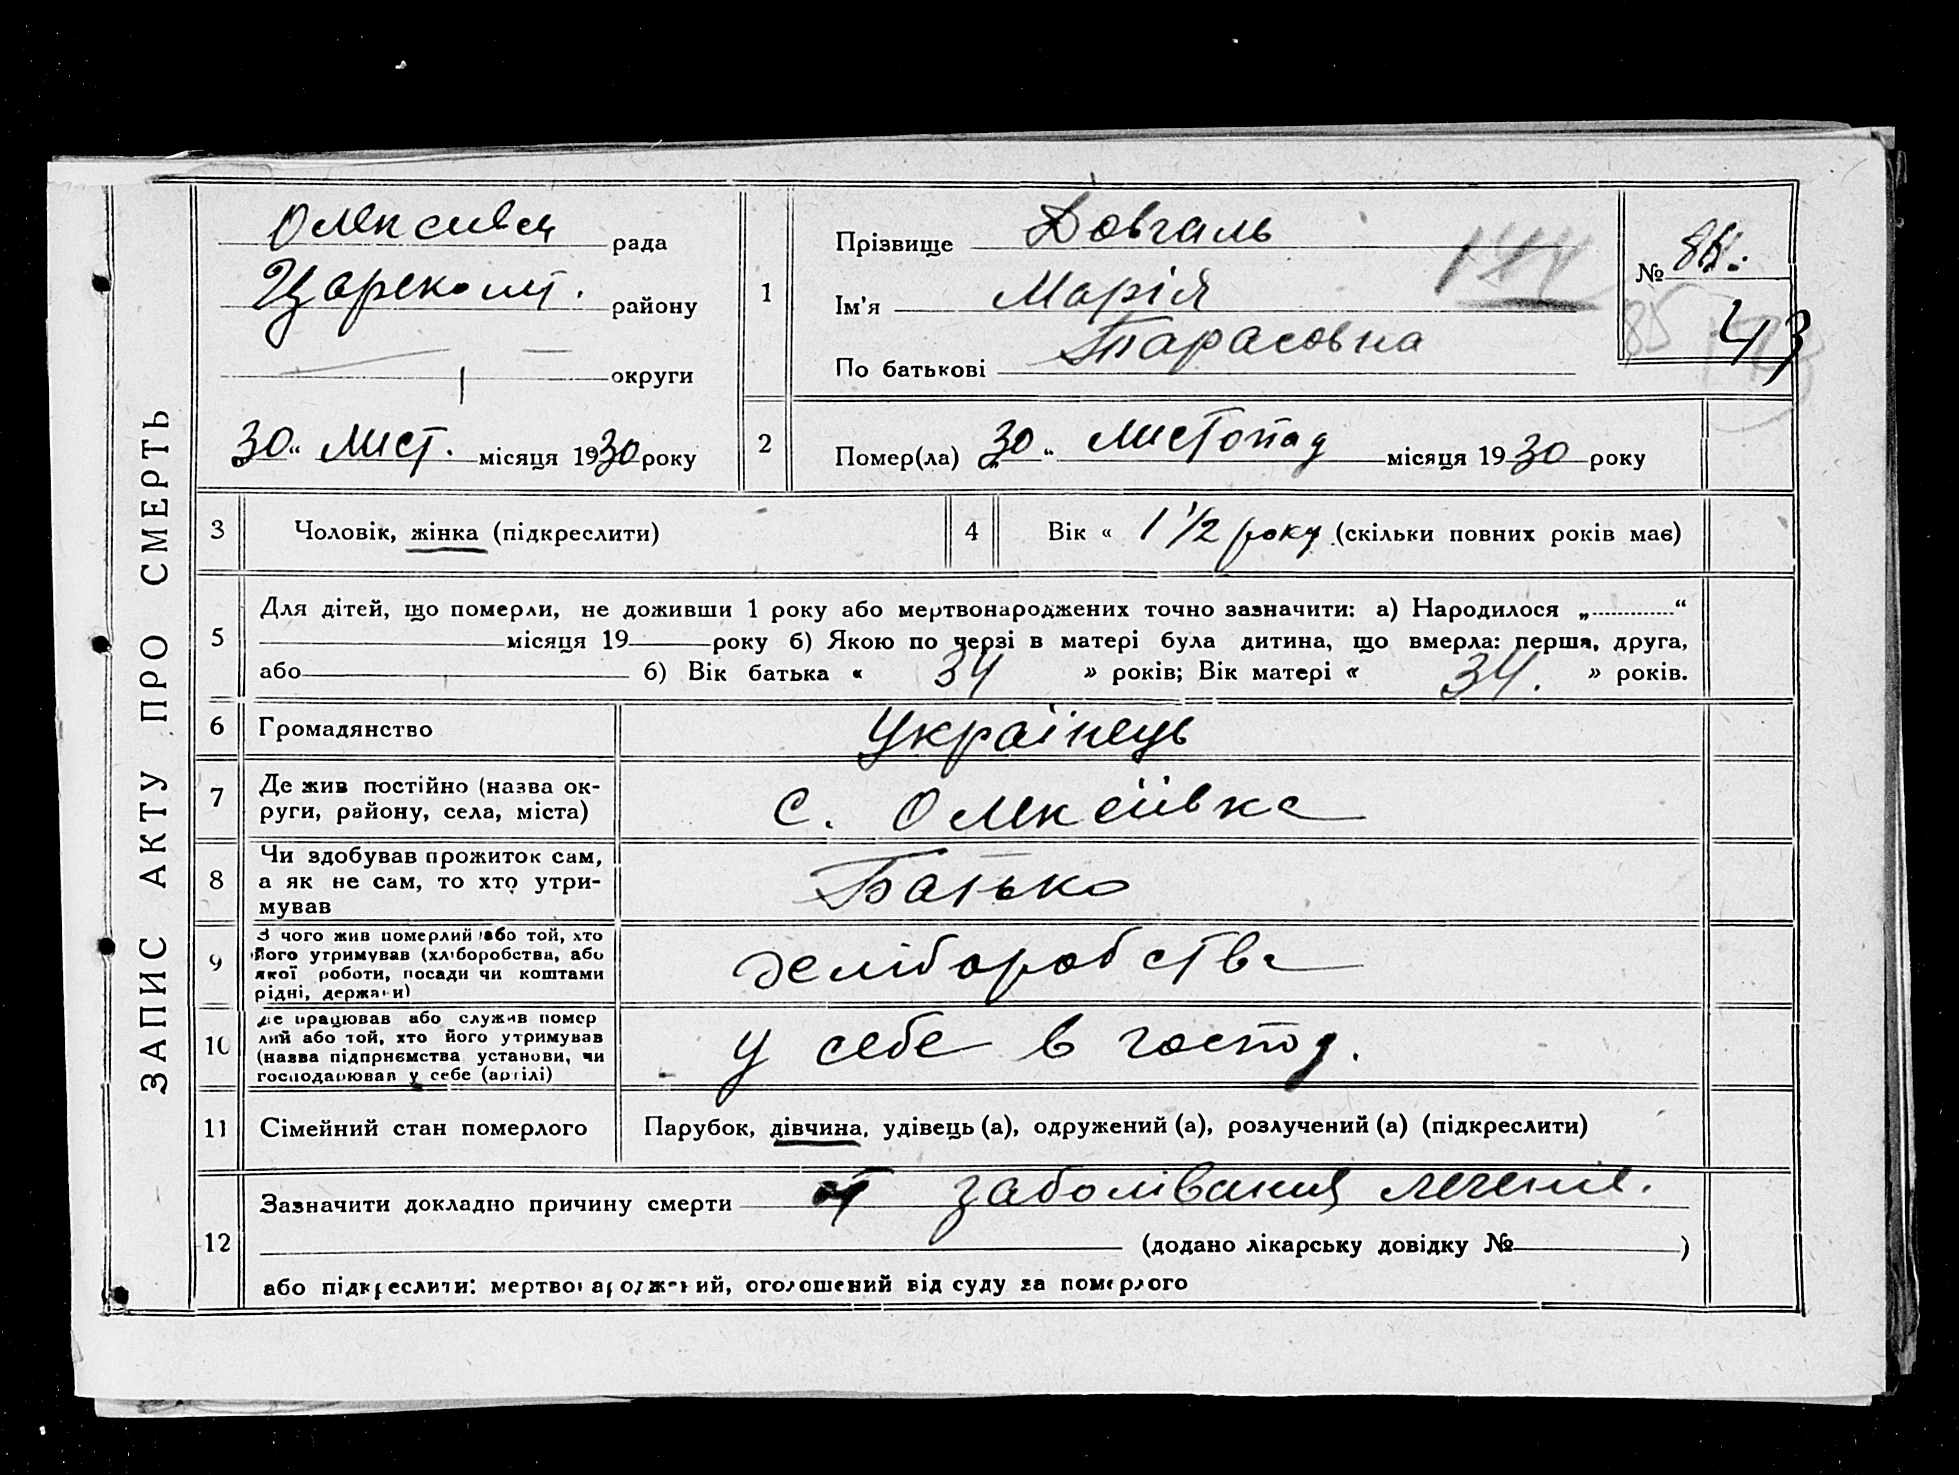 ЗАПИС АКТУ ПРО СМЕРТЬ
Олексиївск рада
Царекошт. району
округи
30 „ Лист. місяця 1930 року
1
Прізвище Довгаль
Ім'я Марія
По батькові Тарасовна
144
№
85
43
2
Помер(ла) 30 „ Листопад місяця 1930 року
3 Чоловік, жінка (підкреслити)
4 Вік « 1 1/2 року (скільки повних років має)
5
Для дітей, що померли, не доживши 1 року або мертвонароджених точно зазначити: а) Народилося „ “
місяця 19 року б) Якою по черзі в матері була дитина, що вмерла: перша, друга,
або б) Вік батька « 34 » років; Вік матері « 34. » років.
6 Громадянство Українець
7
Де жив постійно (назва ок-
руги, району, села, міста)
с. Олексіівка
8
Чи здобував прожиток сам,
а як не сам, то хто утри-
мував
Батько
9
З чого жив померлий або той, хто
його утримував (хліборобства, або
якої роботи, посади чи коштами
рідні, держави)
хліборобства
10
Де працював або служив помер
лий або той, хто його утримував
(назва підприємства установи, чи
господарював у себе (артілі)
у себе в господ.
11 Сімейний стан померлого Парубок, дівчина, удівець (а), одружений (а), розлучений (а) (підкреслити)
12
Зазначити докладно причину смерти от заболівания легенів.
(додано лікарську довідку № )
або підкреслити: мертвонароджений, оголошений від суду за померлого